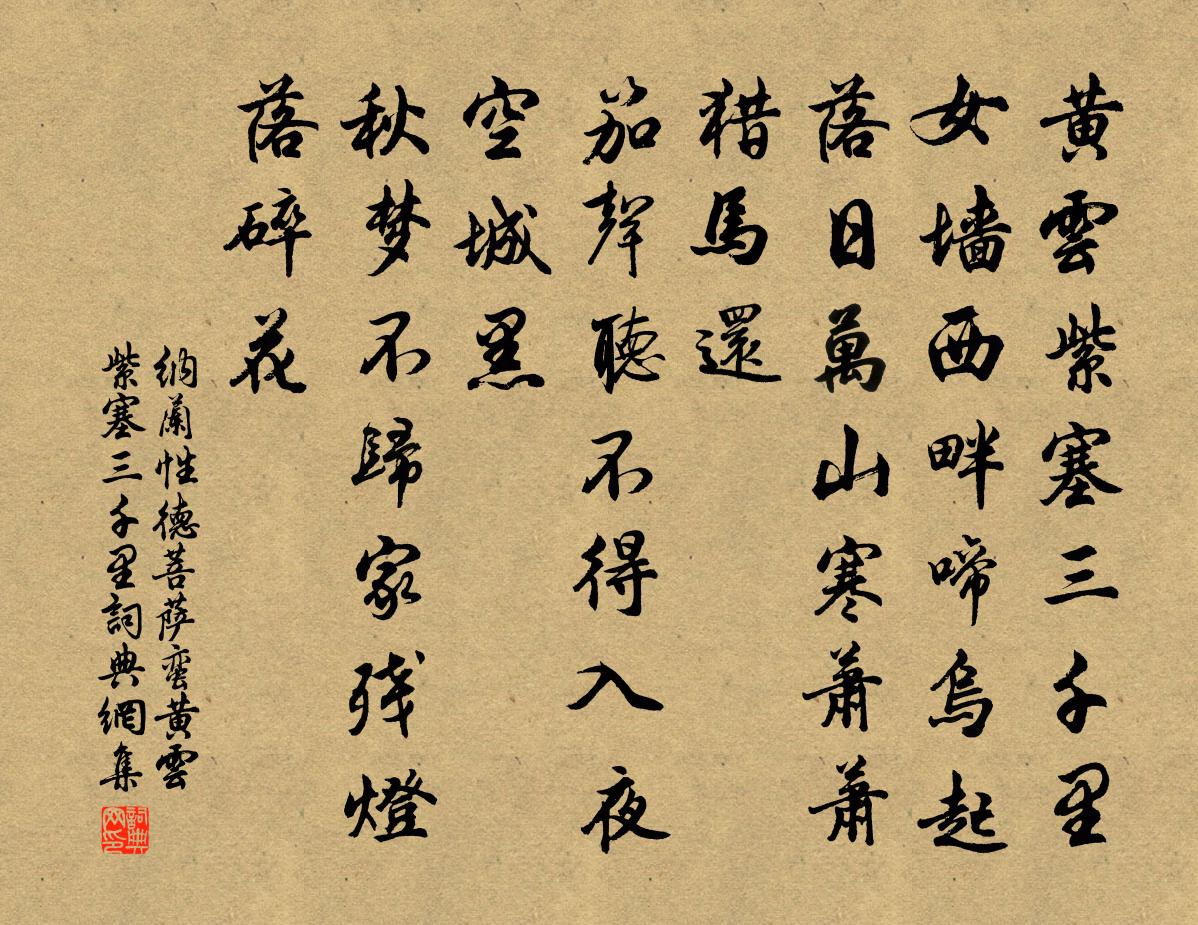 黃雲紫塞三千里
女墻西畔啼烏起
落日萬山寒蕭蕭
猎馬還
笳聲聽不得入夜
空城黑
秋梦不歸家残燈
落碎花
納蘭性德菩萨蛮黃雲
紫塞三千里詞典網集
詞典网印